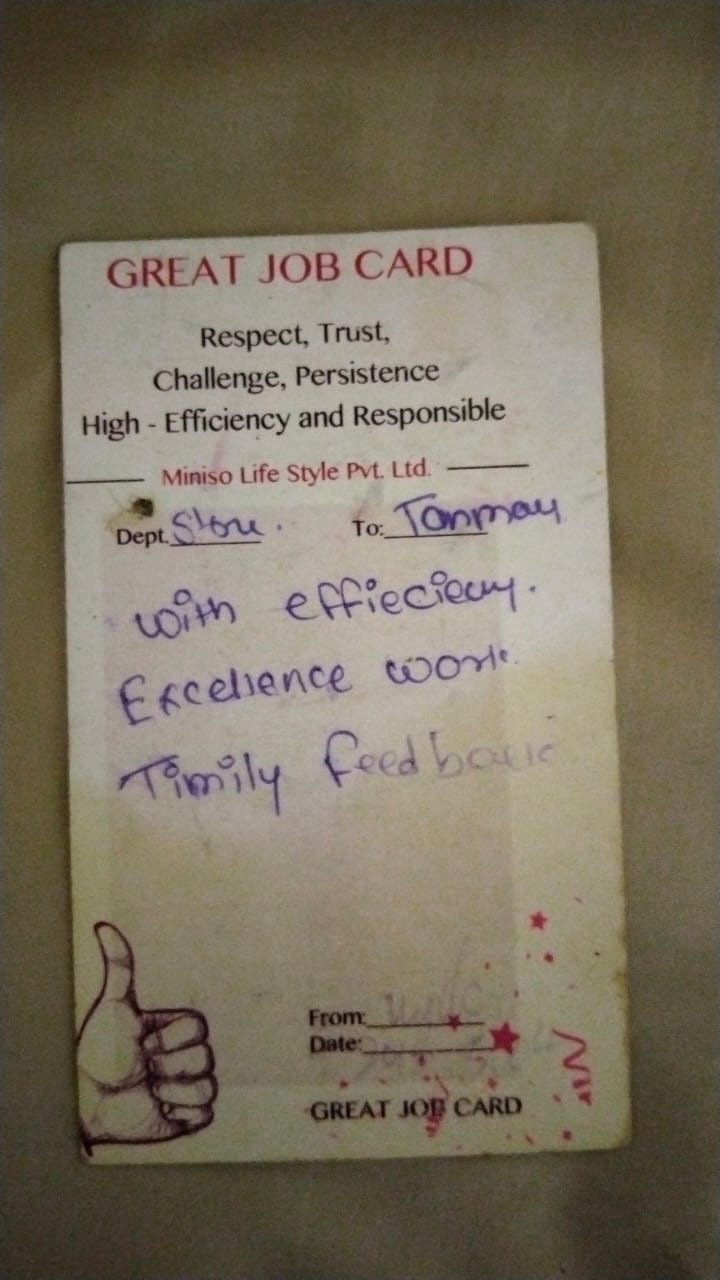 GREAT JOB CARD
Respect, Trust,
Challenge, Persistence
High - Efficiency and Responsible
Miniso Life Style Pvt. Ltd.
Dept. Store. To: Tanmay
with effieciecy.
Excellence work.
Timily feedback
From:
Date:
GREAT JOB CARD